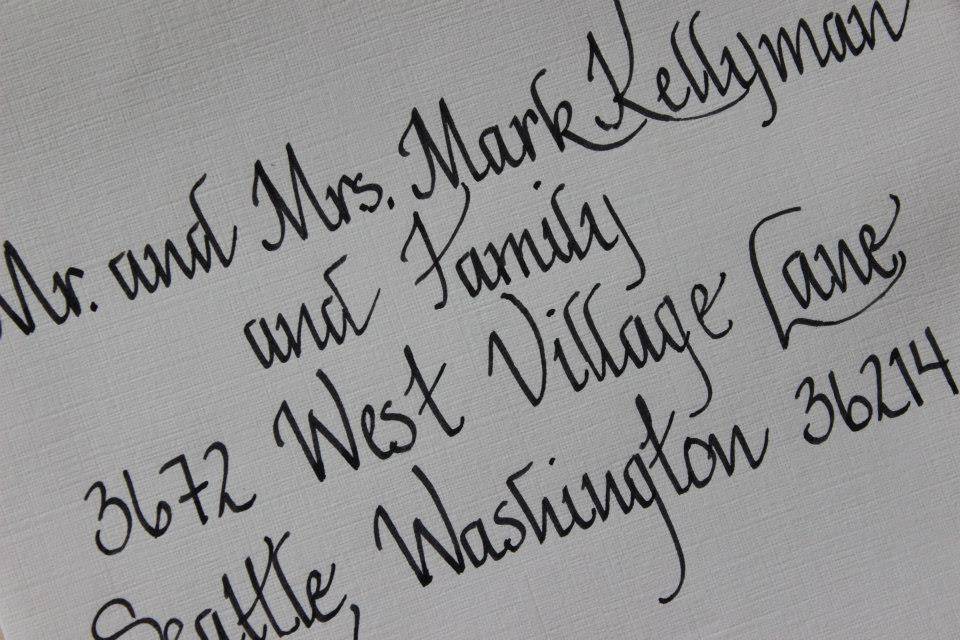 Mr. and Mrs. Mark Kellyman
and Family
3672 West Village Lane
Seattle, Washington 36214